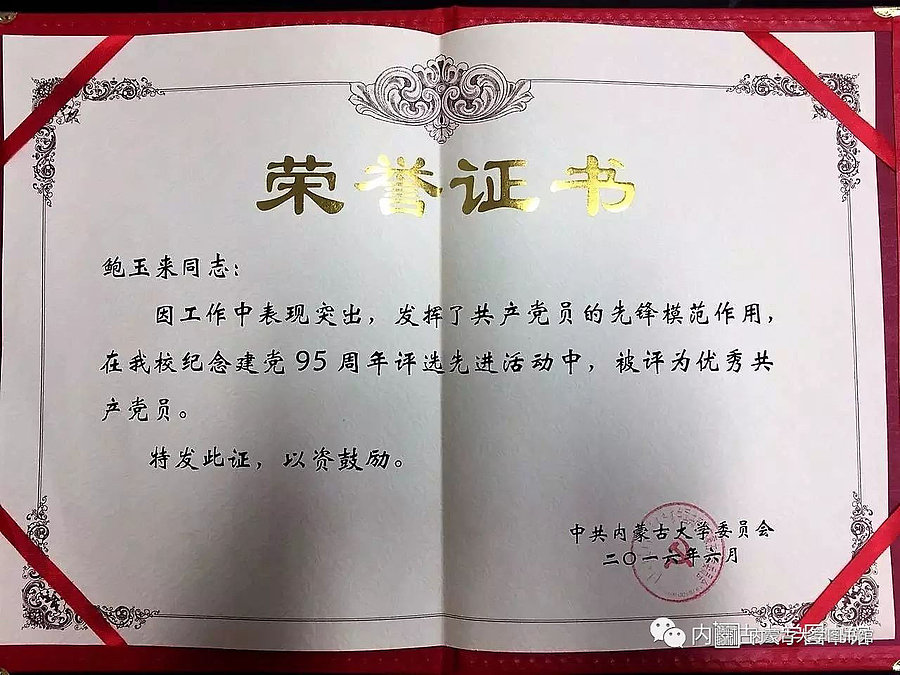 荣誉证书
鲍玉来同志：
因工作中表现突出，发挥了共产党员的先锋模范作用，
在我校纪念建党95周年评选先进活动中，被评为优秀共
产党员。
特发此证，以资鼓励。
中共内蒙古大学委员会
二〇一六年六月
内蒙古大学图书馆